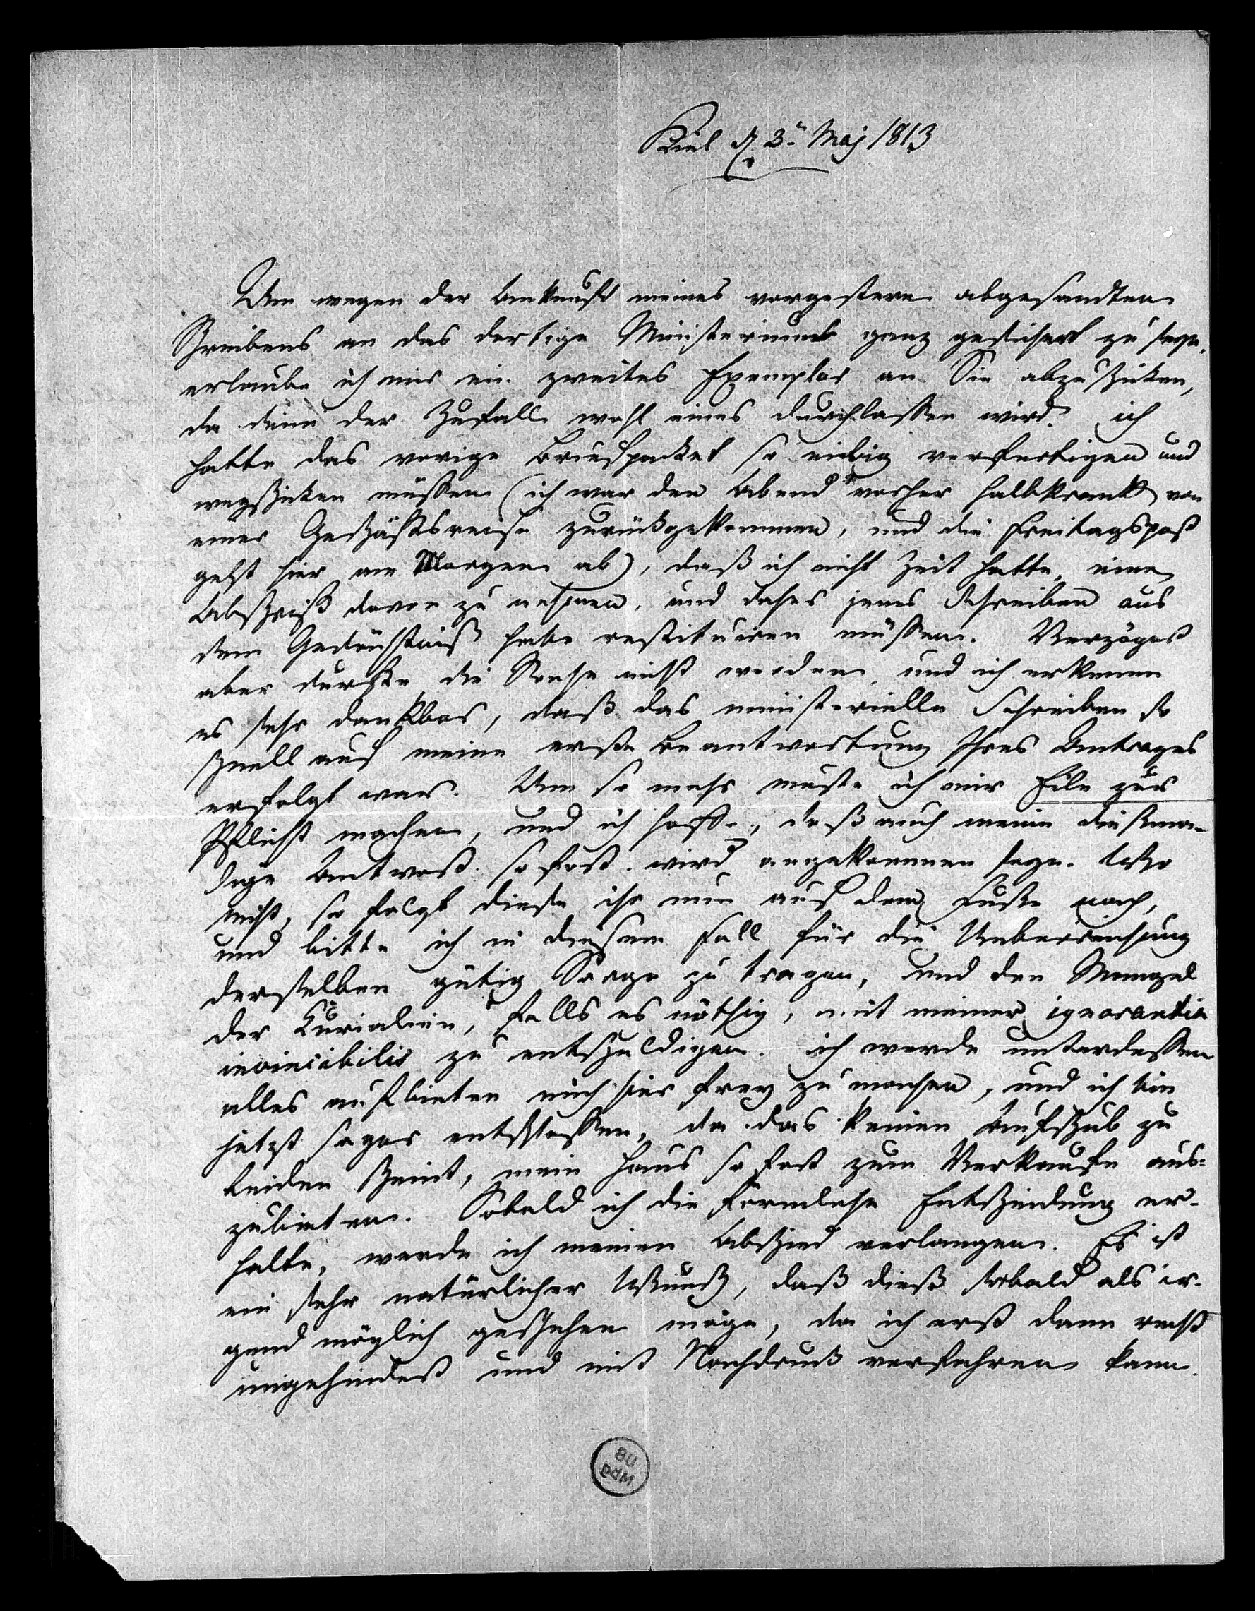 Kiel d. 3n Maj 1813
Um wegen der Ankunft meines vorgestern abgesandten
Schreibens an das dortige Ministerium ganz gesichert zu seyn,
erlaube ich mir ein zweites Exemplar an Sie abzuschicken,
da denn der Zufall wohl eines durchlassen wird. ich
hatte das vorige Briefpacket so eilig verfertigen und
wegschicken müssen (ich war den Abend vorher halbkrank von
einer Geschäftsreise zurückgekommen, und die Freitagspost
geht hier am Morgen ab), daß ich nicht Zeit hatte, eine
Abschrift davon zu nehmen, und daher jenes Schreiben aus
dem Gedächtniß habe restituiren müssen. Verzögert
aber durfte die Sache nicht werden, und ich erkenne
es sehr dankbar, daß das ministerielle Schreiben so
schnell auf meine erste Beantwortung Ihres Antrages
erfolgt war. Um so mehr mußte ich mir Eile zur
Pflicht machen, und ich hoffe, daß auch meine diesma-
lige Antwort sofort wird angekommen seyn. Wo
nicht, so folgt diese ihr nun auf dem Fuße nach,
und bitte ich in diesem Fall für die Ueberreichung
derselben gütig Sorge zu tragen, und den Mangel
der Kurialien, falls es nöthig, mit meiner ignorantia
invincibilis zu entschuldigen. ich werde unterdessen
alles aufbieten mich hier frey zu machen, und ich bin
jetzt sogar entschlossen, da das keinen Aufschub zu
leiden scheint, mein Haus sofort zum Verkaufe aus-
zubieten. Sobald ich die förmliche Entscheidung er-
halte, werde ich meinen Abschied verlangen. Es ist
ein sehr natürlicher Wunsch, daß dieß sobald als ir-
gend möglich geschehen möge, da ich erst dann recht
ungehindert und mit Nachdruck verfahren kann.